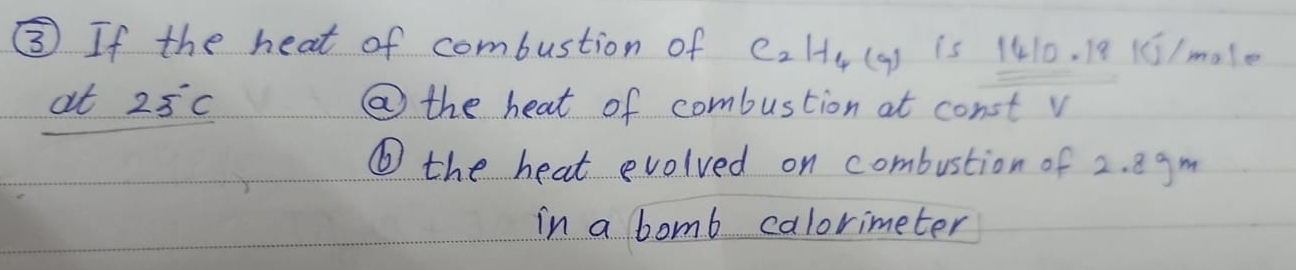 ③ If the heat of combustion of C₂H₄ (g) is 1410.18 KJ/mole
at 25°C ⓐ the heat of combustion at const V
ⓑ the heat evolved on combustion of 2.8 gm
in a bomb calorimeter